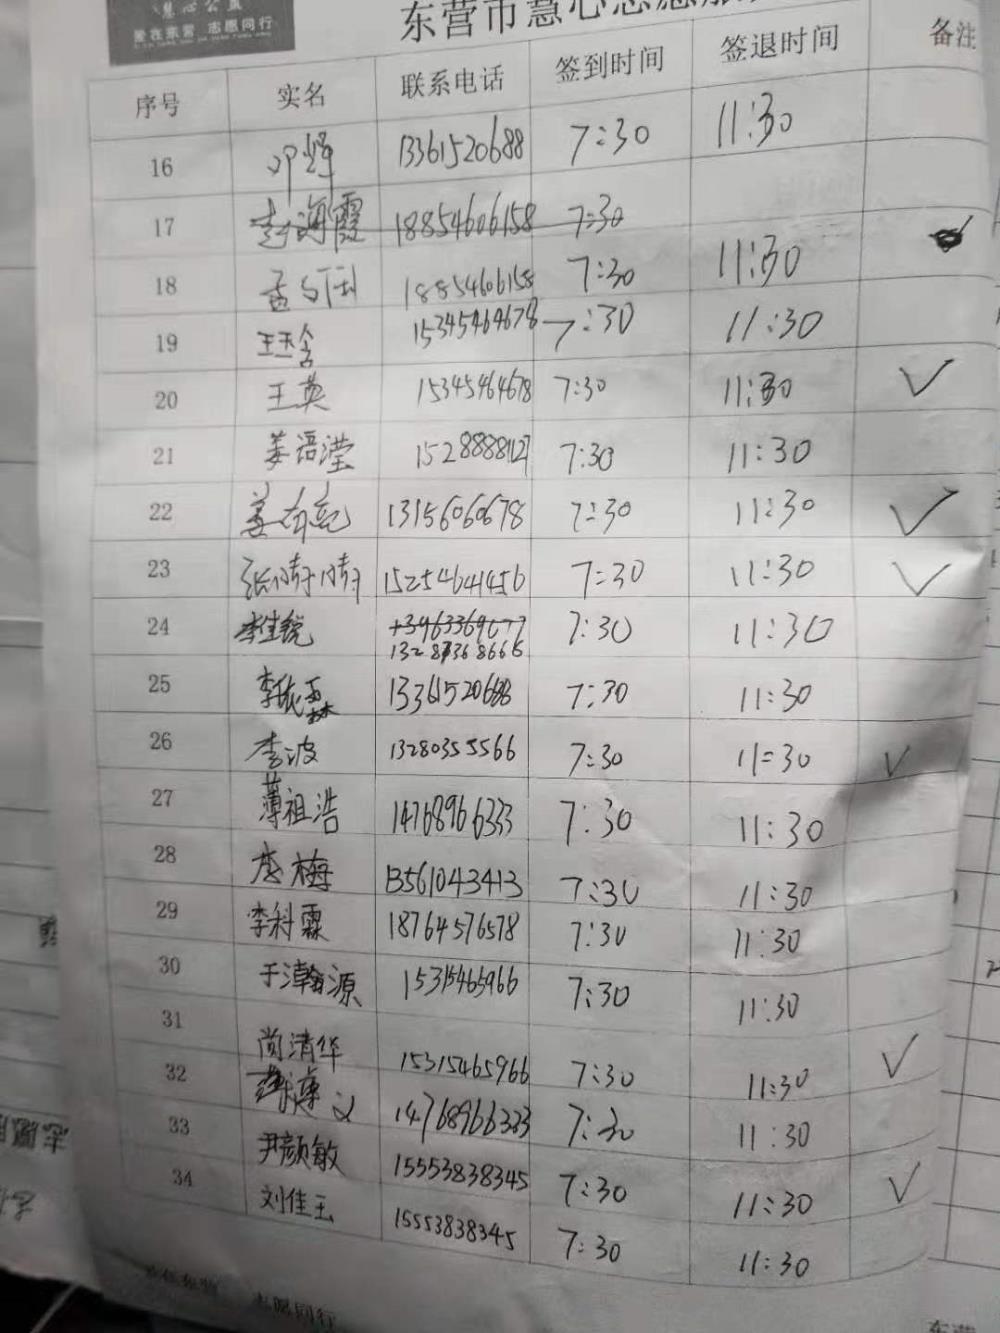 慧心公益
爱在东营 志愿同行
东营市慧心志愿服
序号 实名 联系电话 签到时间 签退时间 备注
16 邓辉 13361520688 7:30 11:30
17 海霞 18854606158 7:30
18 孟 18854606158 7:30 11:30
19 王玉含 15345464678 7:30 11:30
20 王英 15345464678 7:30 11:30 ✓
21 姜语滢 15288881127 7:30 11:30
22 姜 13156060678 7:30 11:30 ✓
23 张倩倩 15254641456 7:30 11:30 ✓
24 李佳锐 7:30 11:30
13287368666
25 李依霖 13361520688 7:30 11:30
26 李波 13280355566 7:30 11:30 ✓
27 薄祖浩 14768966333 7:30 11:30
28 李梅 13561043413 7:30 11:30
29 李科霖 18764576578 7:30 11:30
30 于瀚源 15315465966 7:30 11:30
31 尚清华 15315465966 7:30 11:30 ✓
32 14768966333 7:30 11:30
33 尹颜敏 15553838345 7:30 11:30 ✓
34 刘佳玉 15553838345 7:30 11:30
志愿同行